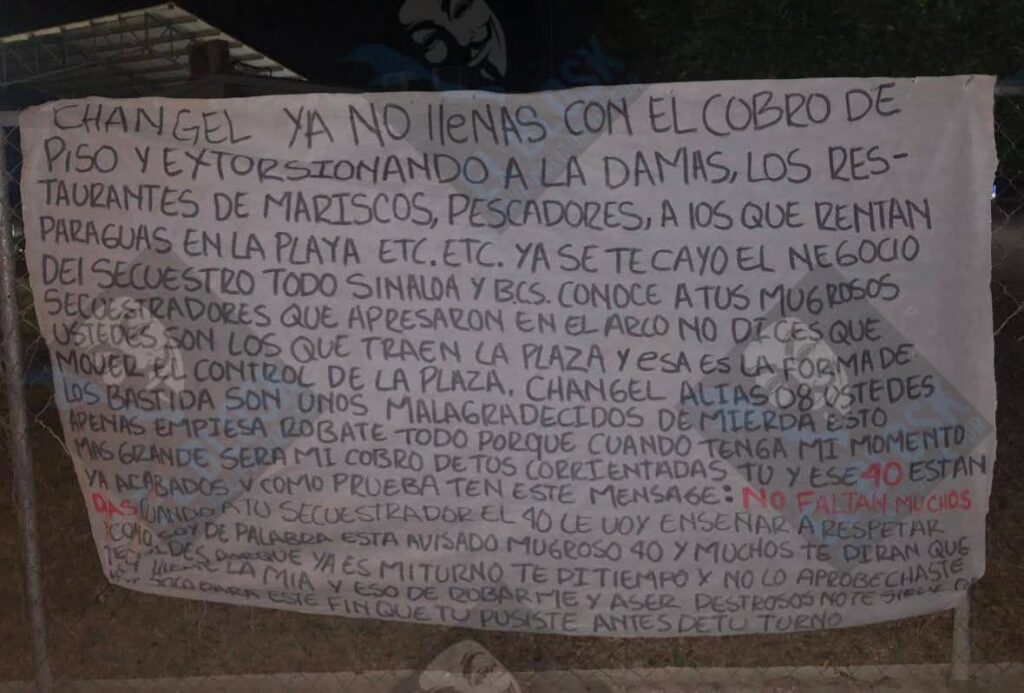 CHANGEL YA NO lleNAS CON EL COBRO DE
PISO Y EXTORSIONANDO A LA DAMAS, LOS RES-
TAURANTES DE MARISCOS, PESCADORES, A lOS QUE RENTAN
PARAGUAS EN LA PLAYA ETC. ETC. YA SE TE CAYO EL NEGOCIO
DEl SECUESTRO TODO SINALOA Y B.C.S. CONOCE A TUS MUGROSOS
SECUESTRADORES QUE APRESARON EN EL ARCO NO DICES QUE
USTEDES SON LOS QUE TRAEN LA PLAZA Y eSA ES LA FORMA DE
MOVER EL CONTROL DE LA PLAZA. CHANGEL ALIAS 08 USTEDES
LOS BASTIDA SON UNOS MALAGRADECIDOS DE MIERDA ESTO
APENAS EMPIESA ROBATE TODO PORQUE CUANDO TENGA MI MOMENTO
MAS GRANDE SERA MI COBRO DE TUS CORRIENTADAS TU Y ESE 40 ESTAN
YA ACABADOS Y COMO PRUEBA TEN ESTE MENSAGE: NO FALTAN MUCHOS
DIAS CUANDO A TU SECUESTRADOR EL 40 LE VOY ENSEÑAR A RESPETAR
Y COMO SOY DE PALABRA ESTA AVISADO MUGROSO 40 Y MUCHOS TE DIRAN QUE
PORQUE YA ES MI TURNO TE DI TIEMPO Y NO LO APROBECHASTE
LA MIA Y ESO DE ROBARME Y ASER DESTROSOS NO TE
SOLO PARA ESTE FIN QUE TU PUSISTE ANTES DE TU TURNO